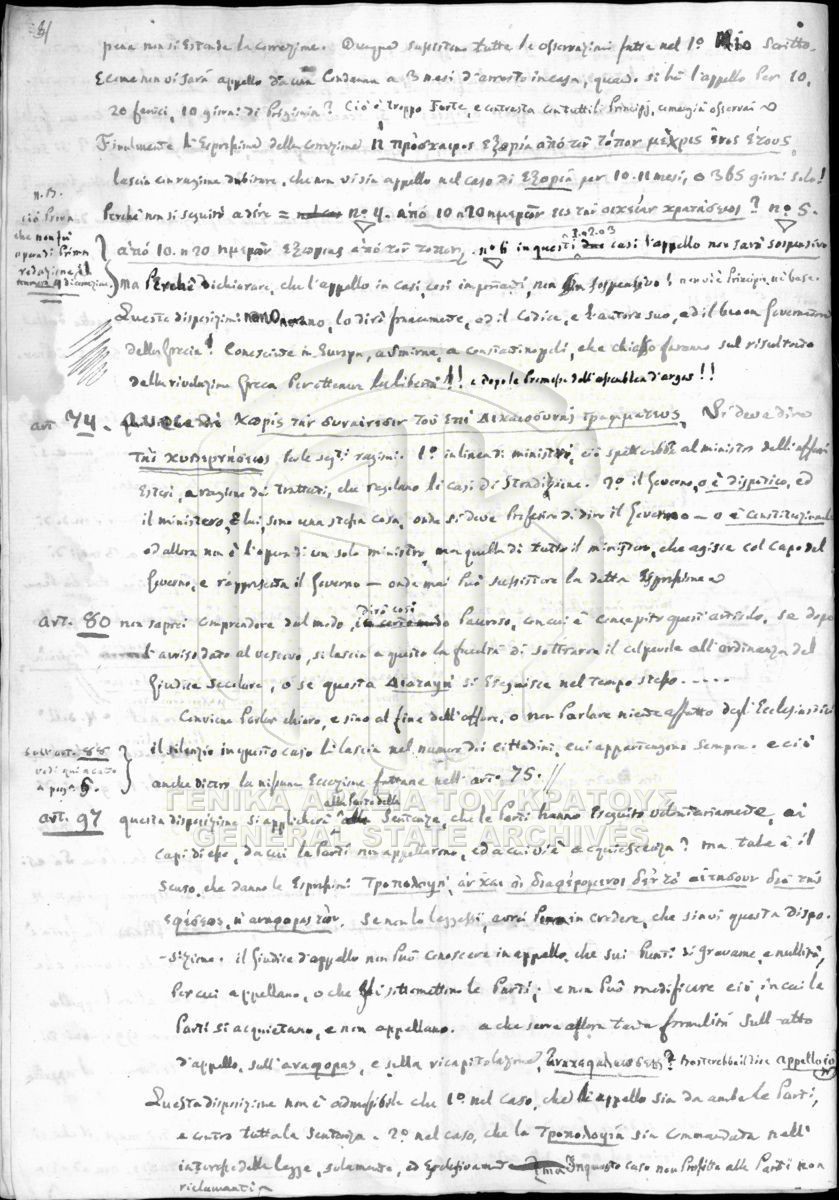 pena non si estende la correzione. Dunque sussistono tutte le osservazioni fatte nel 1º mio scritto.
E come non vi sarà appello da una condanna a 3 mesi d'arresto in casa, quando si ha l'appello per 10,
20 fenici, 10 giorni di prigionia? Ciò è troppo forte, e contrasta con tutti li principj, come già osservai
Finalmente l'espressione della correzione ἡ πρόσκαιρος ἐξορία ἀπό τόν τόπον μέχρις ἑνός ἔτους,
lascia con ragione dubitare, che non vi sia appello nel caso di ἐξορία per 10. 11 mesi, o 365 giorni solo!
Perchè non si seguitò a dire = nº 4. ἀπό 10 ἤ 20 ἡμερῶν εἰς τήν οἰκείαν κρατήσεως? nº 5.
ἀπό 10. ἤ 20 ἡμερῶν ἐξορίας ἀπό τόν τόπον, nº 6 in questi casi l'appello non sarà sospensivo
n. B.
ciò prova
che non fu
opera di prima
redazione, il
ma perchè dichiarare, che l'appello in casi, così importanti, non sia sospensivo! non v'è principio, nè base.
Queste disposizioni, lo dirò francamente, o il Codice, e l'autore suo, ed il buon Governatore
della Grecia! Conosciute in Europa, a Smirne, a Constantinopoli, che chiasso faranno sul risultato
della rivoluzione Greca per ottenere la libertà!!! e dopo le promesse dell'assemblea d'Argos!!
art 74. χωρίς τήν συναίνεσιν τοῦ ἐπί Δικαιοσύνης Γραμματέως, Si deve dire
τῆς κυβερνήσεως per le seg.ti ragioni. 1º in linea di ministri, ciò spetterebbe al ministro delli affari
Esteri, a ragione dei trattati, che regolano li casi di Stradizione. 2º il Governo, o è dispotico, ed
il ministero, e lui, sono una stessa cosa, onde si deve preferire di dire il Governo — o è Constituzionale
ed allora non è l'opera di un solo ministro, ma quella di tutto il ministero, che agisce col Capo del
Governo, e rappresenta il Governo — onde mai può sussistere la detta espressione
art. 80 non saprei comprendere dal modo, dirò così pauroso, con cui è concepito quest'articolo, se dopo
l'avviso dato al vescovo, si lascia a questo la facoltà di sottrarre il colpevole all'ordinanza del
Giudice secolare, o se questa Διαταγή si eseguisce nel tempo stesso.....
Conviene parlar chiaro, e sino al fine dell'affare, o non parlare niente affatto degli Ecclesiastici
il silenzio in questo caso li lascia nel numero dei cittadini, cui appartengono sempre. e ciò
anche dietro la nissuna eccezione fattane nell'arto. 75.
sull'art. 88
vedi qui accanto
a pag. 5.
ΓΕΝΙΚΑ ΑΡΧΕΙΑ ΤΟΥ ΚΡΑΤΟΥΣ
GENERAL STATE ARCHIVES
art. 97 questa disposizione si applicherà alla parte della Sentenza, che le Parti hanno eseguito volontariamente, ai
capi di essa, da cui la Parte non appellarono, ed a cui vi è acquiescenza? ma tale è il
senso, che danno le espressioni Τροπολογῇ, ἄν καί οἱ διαφερόμενοι δέν τό αἴτησουν διά τῆς
ἐφέσεως, ἤ ἀναφορᾶς των. Se non lo leggessi, avrei pena in credere, che siavi questa dispo-
-sizione. il Giudice d'appello non può conoscere in appello, che sui punti di gravame, e nullità,
per cui appellano, o che gli sottomettono le Parti; e non può modificare ciò, in cui le
Parti si acquietano, e non appellano. a che serve allora tanta formalità sull'atto
d'appello, sull'ἀναφορᾶς, e sulla ricapitolazione, ἀνακεφαλαιώσεως? basterebbe il dire appello io
Questa disposizione non è admissibile che 1º nel caso, che l'appello sia da ambe le Parti,
e contro tutta la sentenza. 2º nel caso, che la Τροπολογία sia commandata nell'
interesse della legge, solamente, ed esclusivamente In questo caso non profitta alle Parti non
reclamanti